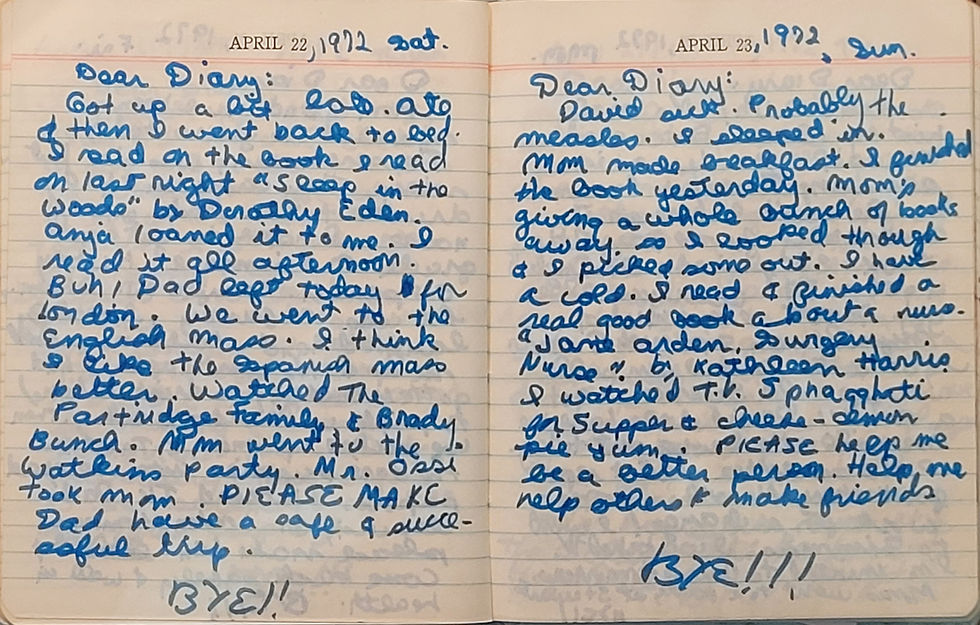 APRIL 22, 1972 Sat.
Dear Diary:
Got up a bit late. ate
& then I went back to bed.
I read on the book I read
on last night "Sleep in the
Woods" by Dorothy Eden.
Anja loaned it to me. I
read it all afternoon.
Buh! Dad left today for
London. We went to the
English Mass. I think
I like the Spanish mass
better. Watched The
Partridge Family & Brady
Bunch. Mom went to the
Watkins party. Mr. Ossi
took mom. PlEASE MAKE
Dad have a safe & succe-
ssful trip.
BYE!!
APRIL 23, 1972, Sun.
Dear Diary:
David sick. Probably the
measles. I sleeped in.
Mom made breakfast. I finished
the book yesterday. Mom's
giving a whole bunch of books
away, so I looked through
& I picked some out. I have
a cold. I read & finished a
real good book about a nurse.
"Jane Arden, Surgery
Nurse" by Kathleen Harris
I watched T.V. Sphagghati
for Supper & cheese-lemon
pie yum. PlEASE help me
be a better person. Help me
help others & make friends
BYE!!!